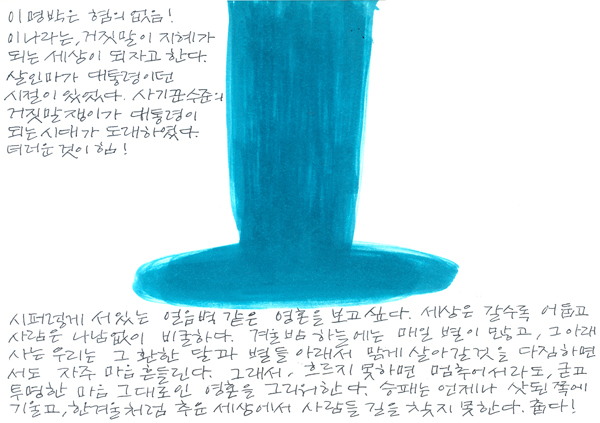 이명박은 혐의 없음!
이나라는, 거짓말이 지혜가
되는 세상이 되자고 한다.
살인마가 대통령이던
시절이 있었다. 사기꾼수준의
거짓말쟁이가 대통령이
되는시대가 도래하였다.
더러운 것이 힘!
시퍼렇게 서있는 얼음벽 같은 영혼을 보고싶다. 세상은 갈수록 어둡고
사람은 나남없이 비굴하다. 겨울밤 하늘에는 매일 별이 많고, 그아래
사는 우리는 그 환한 달과 별들 아래서 맑게 살아갈것을 다짐하면
서도 자주 마음 흔들린다. 그래서, 흐르지 못하면 멈추어서라도, 굳고
투명한 마음 그대로인 영혼을 그리워한다. 승패는 언제나 삿된쪽에
기울고, 한겨울처럼 추운 세상에서 사람들 길을 찾지 못한다. 춥다!